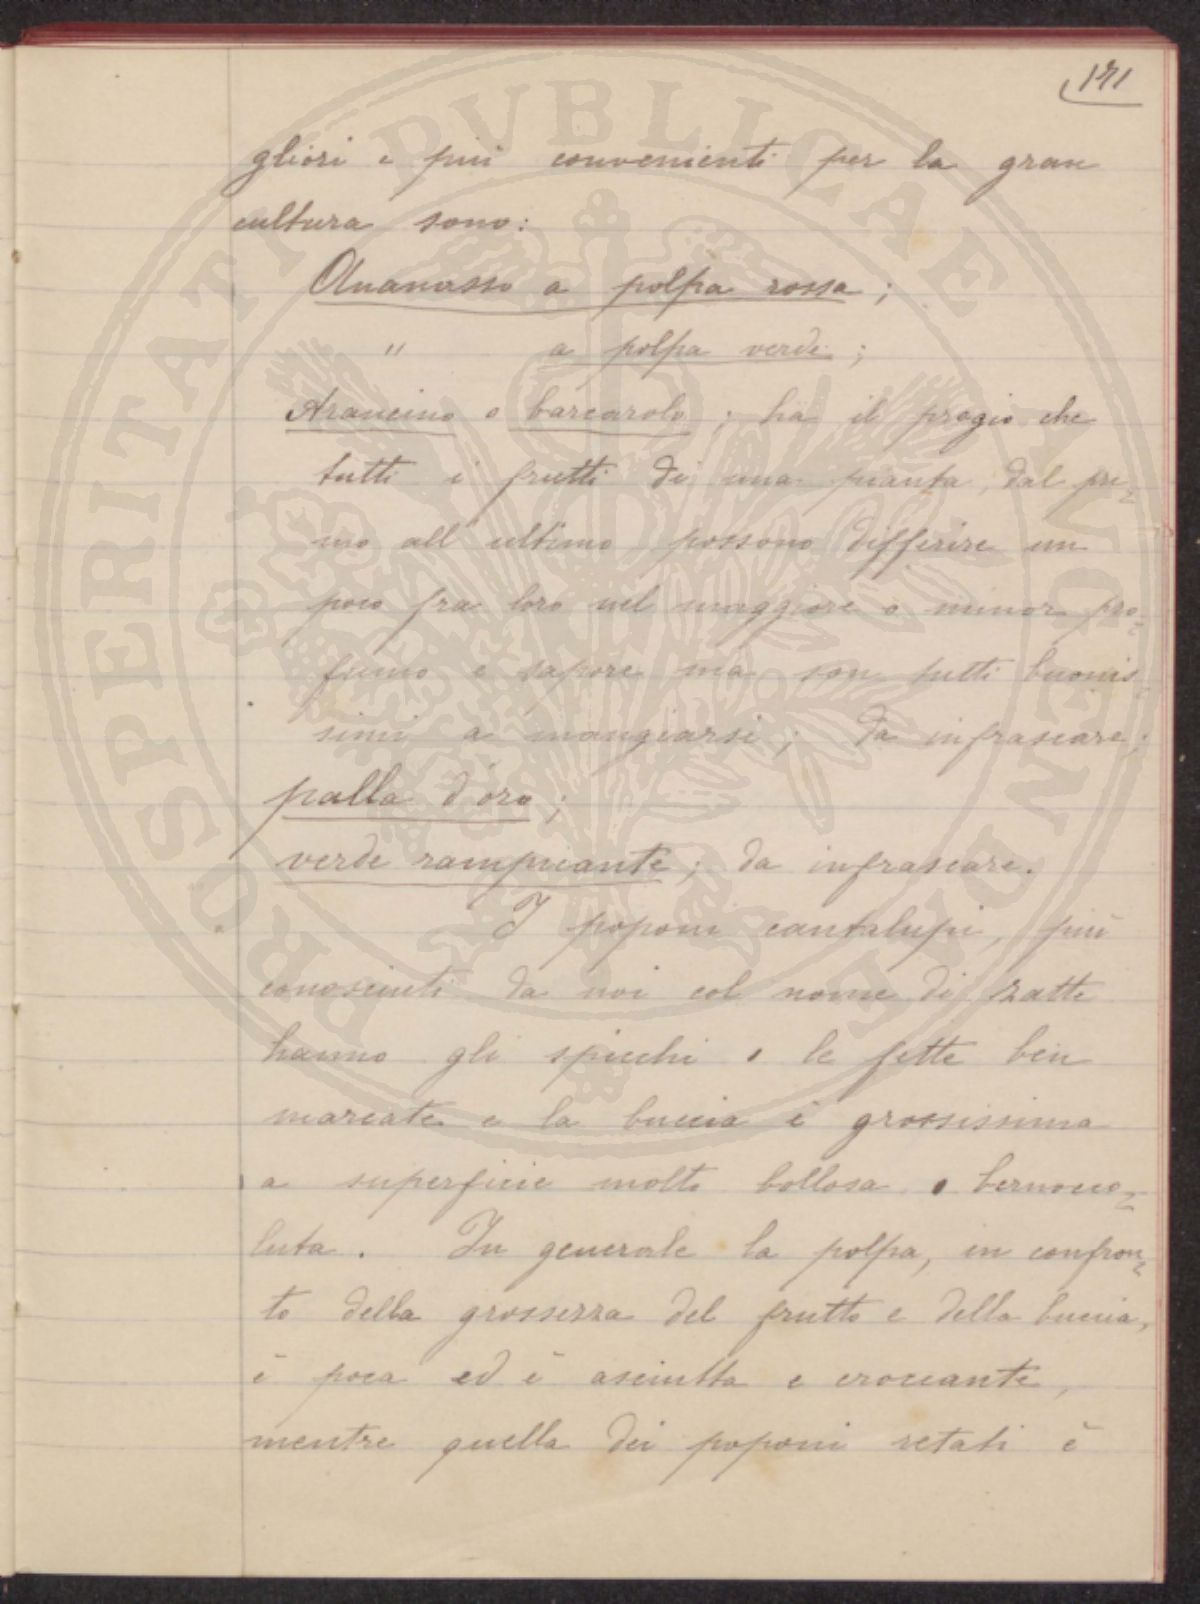 171
gliori e più convenienti per la gran
cultura sono:
Ananasso a polpa rossa;
" a polpa verde;
Arancino o barcarolo; ha il pregio che
tutti i frutti di una pianta, dal pri=
mo all'ultimo possono differire un
poco fra loro nel maggiore o minor pro=
fumo e sapore ma son tutti buonis=
simi a mangiarsi; da infrascare;
palla d'oro;
verde rampicante; da infrascare.
I poponi cantalupi, più
conosciuti da noi col nome di zatte
hanno gli spicchi o le fette ben
marcate e la buccia è grossissima
a superficie molto bollosa o bernocco=
luta. In generale la polpa, in confron=
to della grossezza del frutto e della buccia,
è poca ed è asciutta e croccante,
mentre quella dei poponi retati è
PROSPERITATI PUBLICAE AUGENDAE